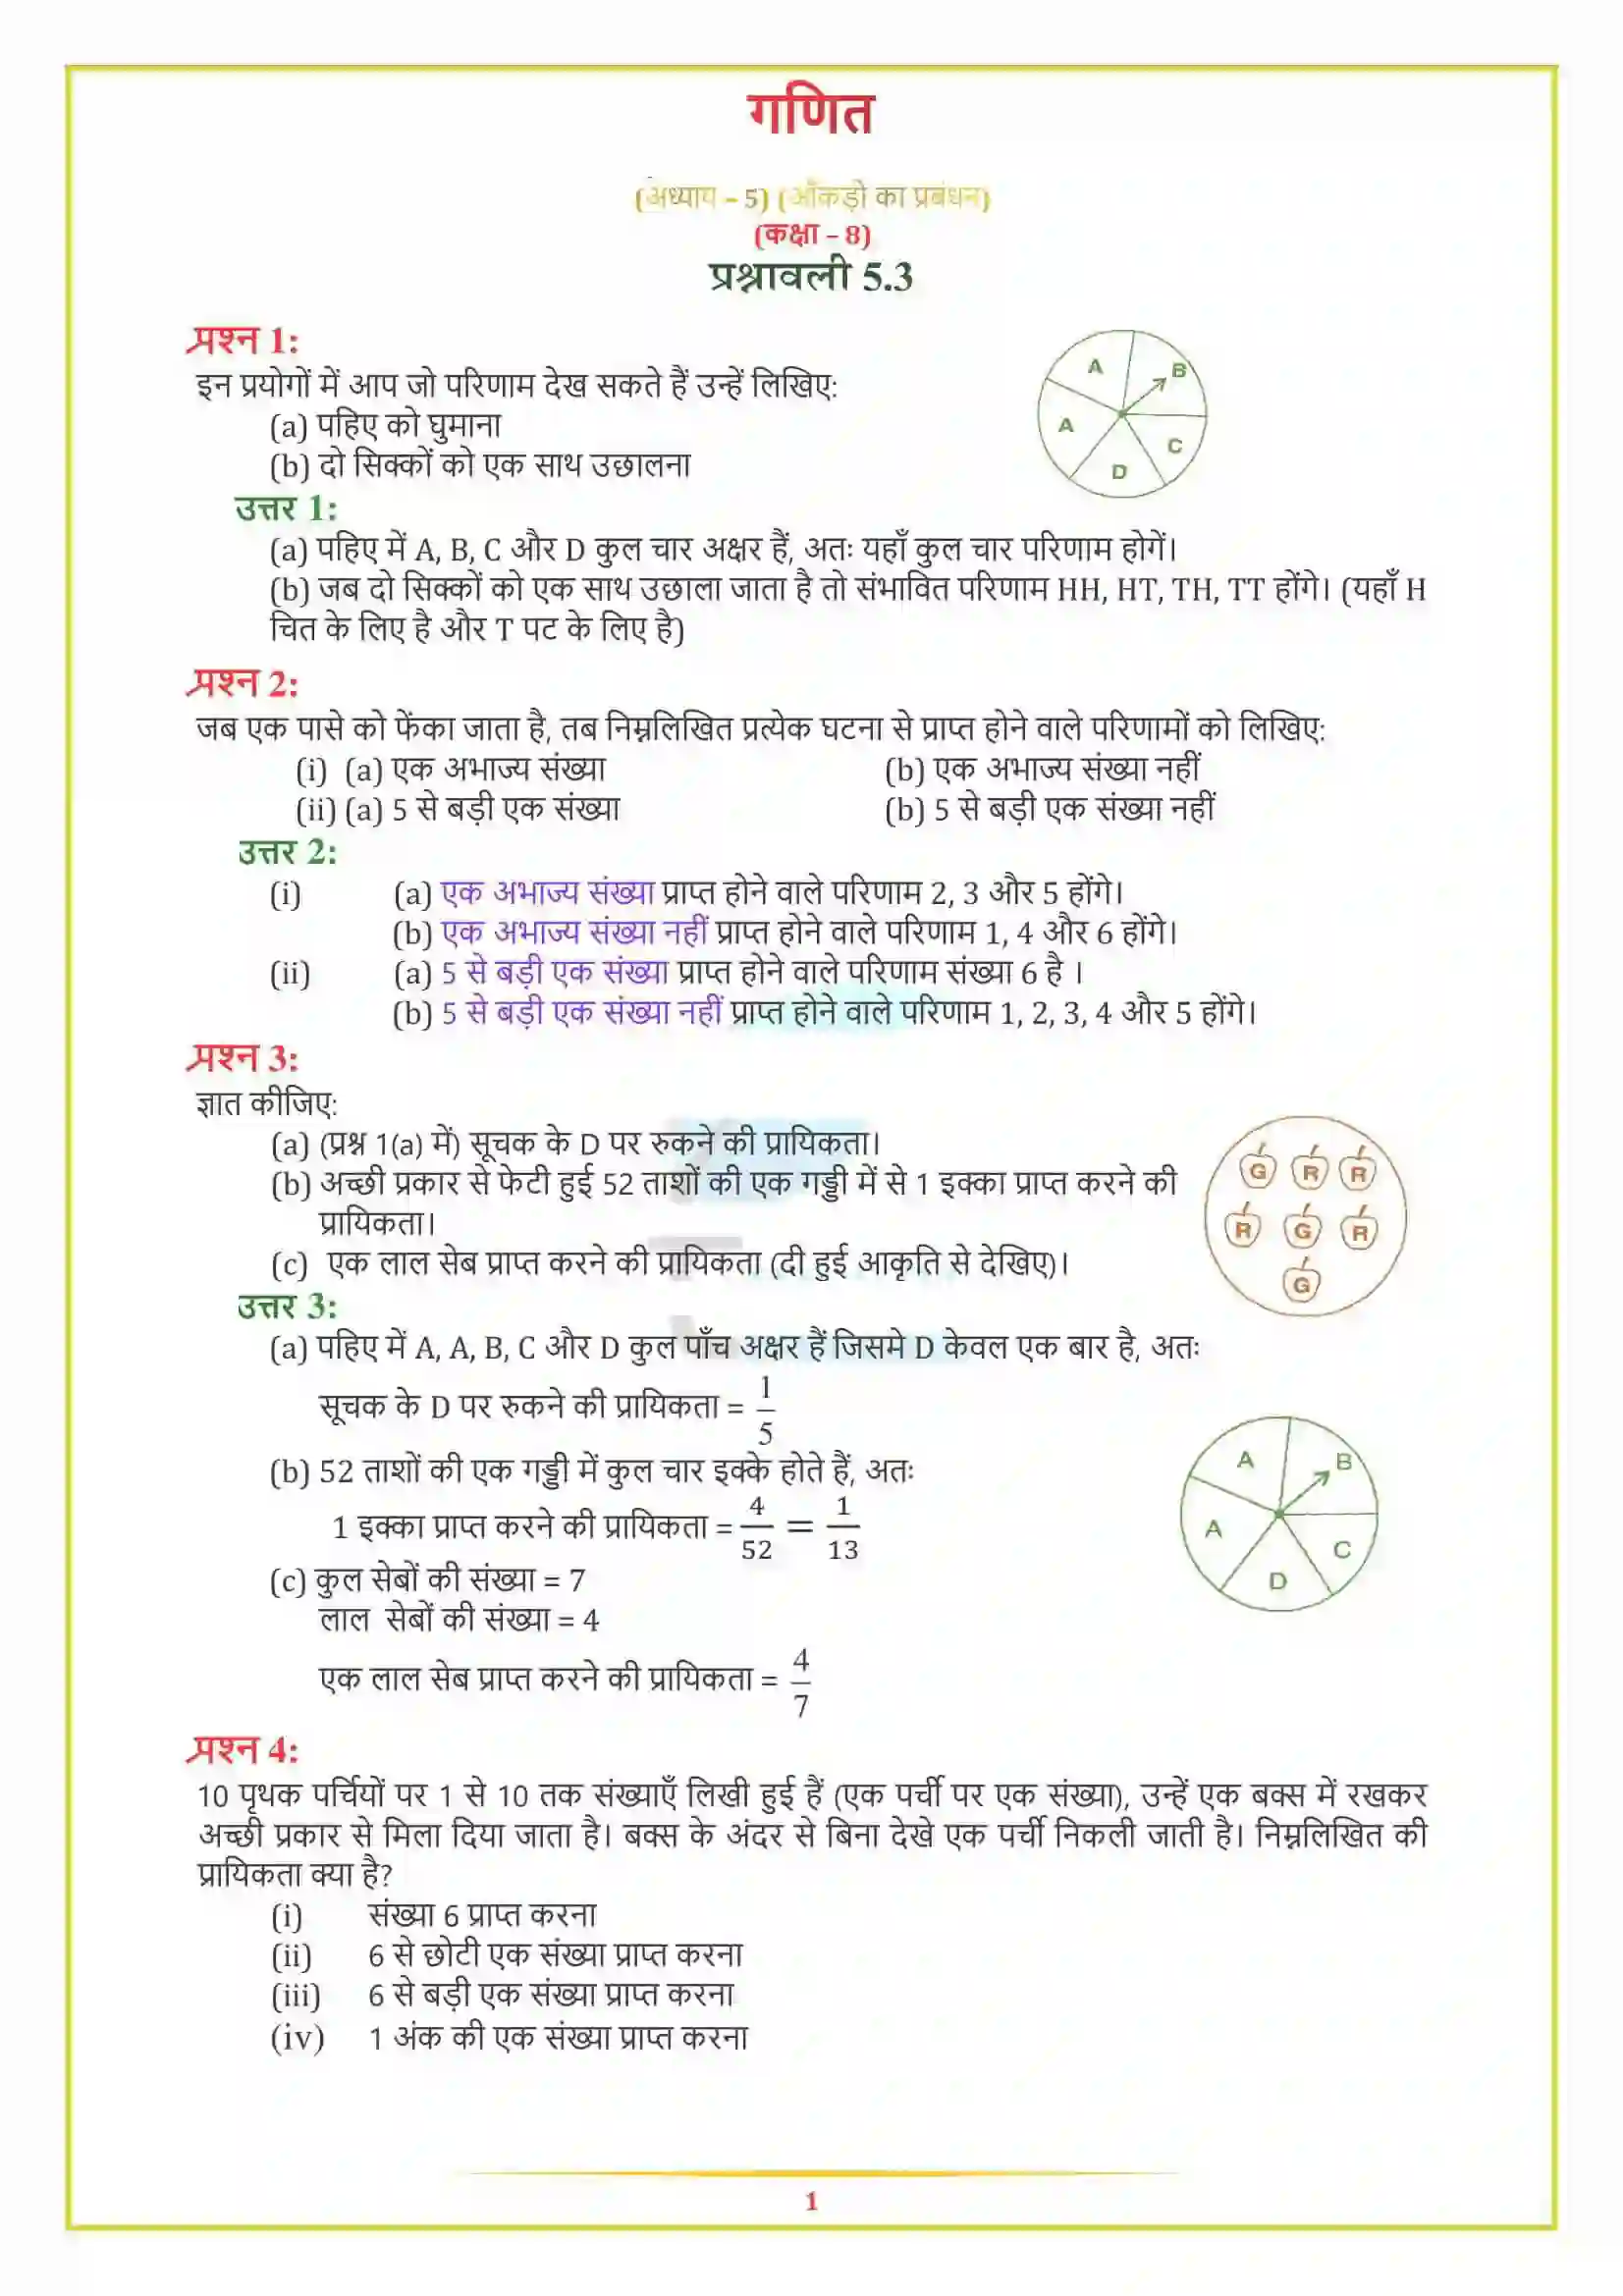 गणित
(अध्याय – 5) (आँकड़ो का प्रबंधन)
(कक्षा – 8)
प्रश्नावली 5.3
प्रश्न 1:
इन प्रयोगों में आप जो परिणाम देख सकते हैं उन्हें लिखिए:
(a) पहिए को घुमाना
(b) दो सिक्कों को एक साथ उछालना
A
B
A
C
D
उत्तर 1:
(a) पहिए में A, B, C और D कुल चार अक्षर हैं, अतः यहाँ कुल चार परिणाम होगें।
(b) जब दो सिक्कों को एक साथ उछाला जाता है तो संभावित परिणाम HH, HT, TH, TT होंगे। (यहाँ H
चित के लिए है और T पट के लिए है)
प्रश्न 2:
जब एक पासे को फेंका जाता है, तब निम्नलिखित प्रत्येक घटना से प्राप्त होने वाले परिणामों को लिखिए:
(i) (a) एक अभाज्य संख्या (b) एक अभाज्य संख्या नहीं
(ii) (a) 5 से बड़ी एक संख्या (b) 5 से बड़ी एक संख्या नहीं
उत्तर 2:
(i) (a) एक अभाज्य संख्या प्राप्त होने वाले परिणाम 2, 3 और 5 होंगे।
(b) एक अभाज्य संख्या नहीं प्राप्त होने वाले परिणाम 1, 4 और 6 होंगे।
(ii) (a) 5 से बड़ी एक संख्या प्राप्त होने वाले परिणाम संख्या 6 है ।
(b) 5 से बड़ी एक संख्या नहीं प्राप्त होने वाले परिणाम 1, 2, 3, 4 और 5 होंगे।
प्रश्न 3:
ज्ञात कीजिए:
(a) (प्रश्न 1(a) में) सूचक के D पर रुकने की प्रायिकता।
(b) अच्छी प्रकार से फेटी हुई 52 ताशों की एक गड्डी में से 1 इक्का प्राप्त करने की
प्रायिकता।
(c) एक लाल सेब प्राप्त करने की प्रायिकता (दी हुई आकृति से देखिए)।
G R R
R G R
G
उत्तर 3:
(a) पहिए में A, A, B, C और D कुल पाँच अक्षर हैं जिसमे D केवल एक बार है, अतः
सूचक के D पर रुकने की प्रायिकता = 1/5
(b) 52 ताशों की एक गड्डी में कुल चार इक्के होते हैं, अतः
1 इक्का प्राप्त करने की प्रायिकता = 4/52 = 1/13
(c) कुल सेबों की संख्या = 7
लाल सेबों की संख्या = 4
एक लाल सेब प्राप्त करने की प्रायिकता = 4/7
A
B
A
C
D
प्रश्न 4:
10 पृथक पर्चियों पर 1 से 10 तक संख्याएँ लिखी हुई हैं (एक पर्ची पर एक संख्या), उन्हें एक बक्स में रखकर
अच्छी प्रकार से मिला दिया जाता है। बक्स के अंदर से बिना देखे एक पर्ची निकली जाती है। निम्नलिखित की
प्रायिकता क्या है?
(i) संख्या 6 प्राप्त करना
(ii) 6 से छोटी एक संख्या प्राप्त करना
(iii) 6 से बड़ी एक संख्या प्राप्त करना
(iv) 1 अंक की एक संख्या प्राप्त करना
1